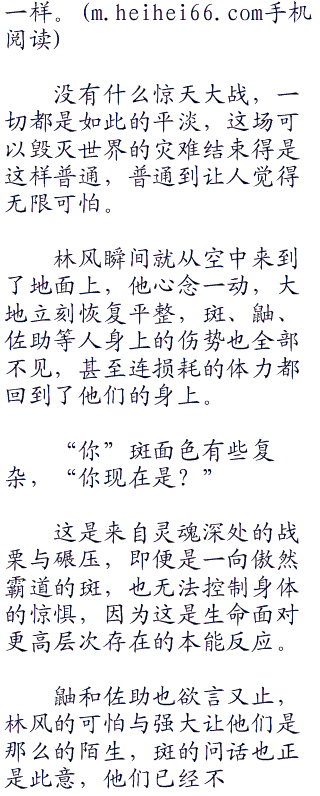 一样。(m.heihei66.com手机
阅读)
没有什么惊天大战，一
切都是如此的平淡，这场可
以毁灭世界的灾难结束得是
这样普通，普通到让人觉得
无限可怕。
林风瞬间就从空中来到
了地面上，他心念一动，大
地立刻恢复平整，斑、鼬、
佐助等人身上的伤势也全部
不见，甚至连损耗的体力都
回到了他们的身上。
“你”斑面色有些复
杂，“你现在是？”
这是来自灵魂深处的战
栗与碾压，即便是一向傲然
霸道的斑，也无法控制身体
的惊惧，因为这是生命面对
更高层次存在的本能反应。
鼬和佐助也欲言又止，
林风的可怕与强大让他们是
那么的陌生，斑的问话也正
是此意，他们已经不